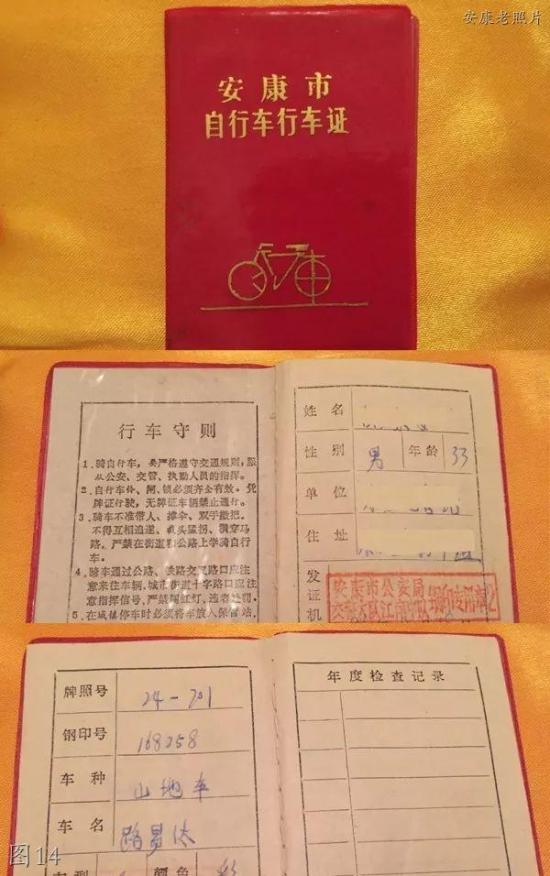 安康老照片
安康市
自行车行车证
行车守则
1、骑自行车，要严格遵守交通规则，服
从公安、交管、执勤人员的指挥。
2、自行车铃、闸、锁必须齐全有效。凭
牌证行驶，无牌证车辆禁止通行。
3、骑车不准带人、撑伞、双手撒把。
不得互相追逐、
路。严禁在街道和公路上学骑自行
车。
4、骑车通过公路、铁路交叉路口应注
意来往车辆，城市街道十字路口应注
意指挥信号，严禁闯红灯，违者处罚。
5、在城镇停车时必须将车放入保管站，
姓名
性别 男 年龄 33
单位
住址
发证机
安康市公安局
牌照号 24-701
钢印号 168258
车种 山地车
车名 路易达
颜色
年度检查记录
图14